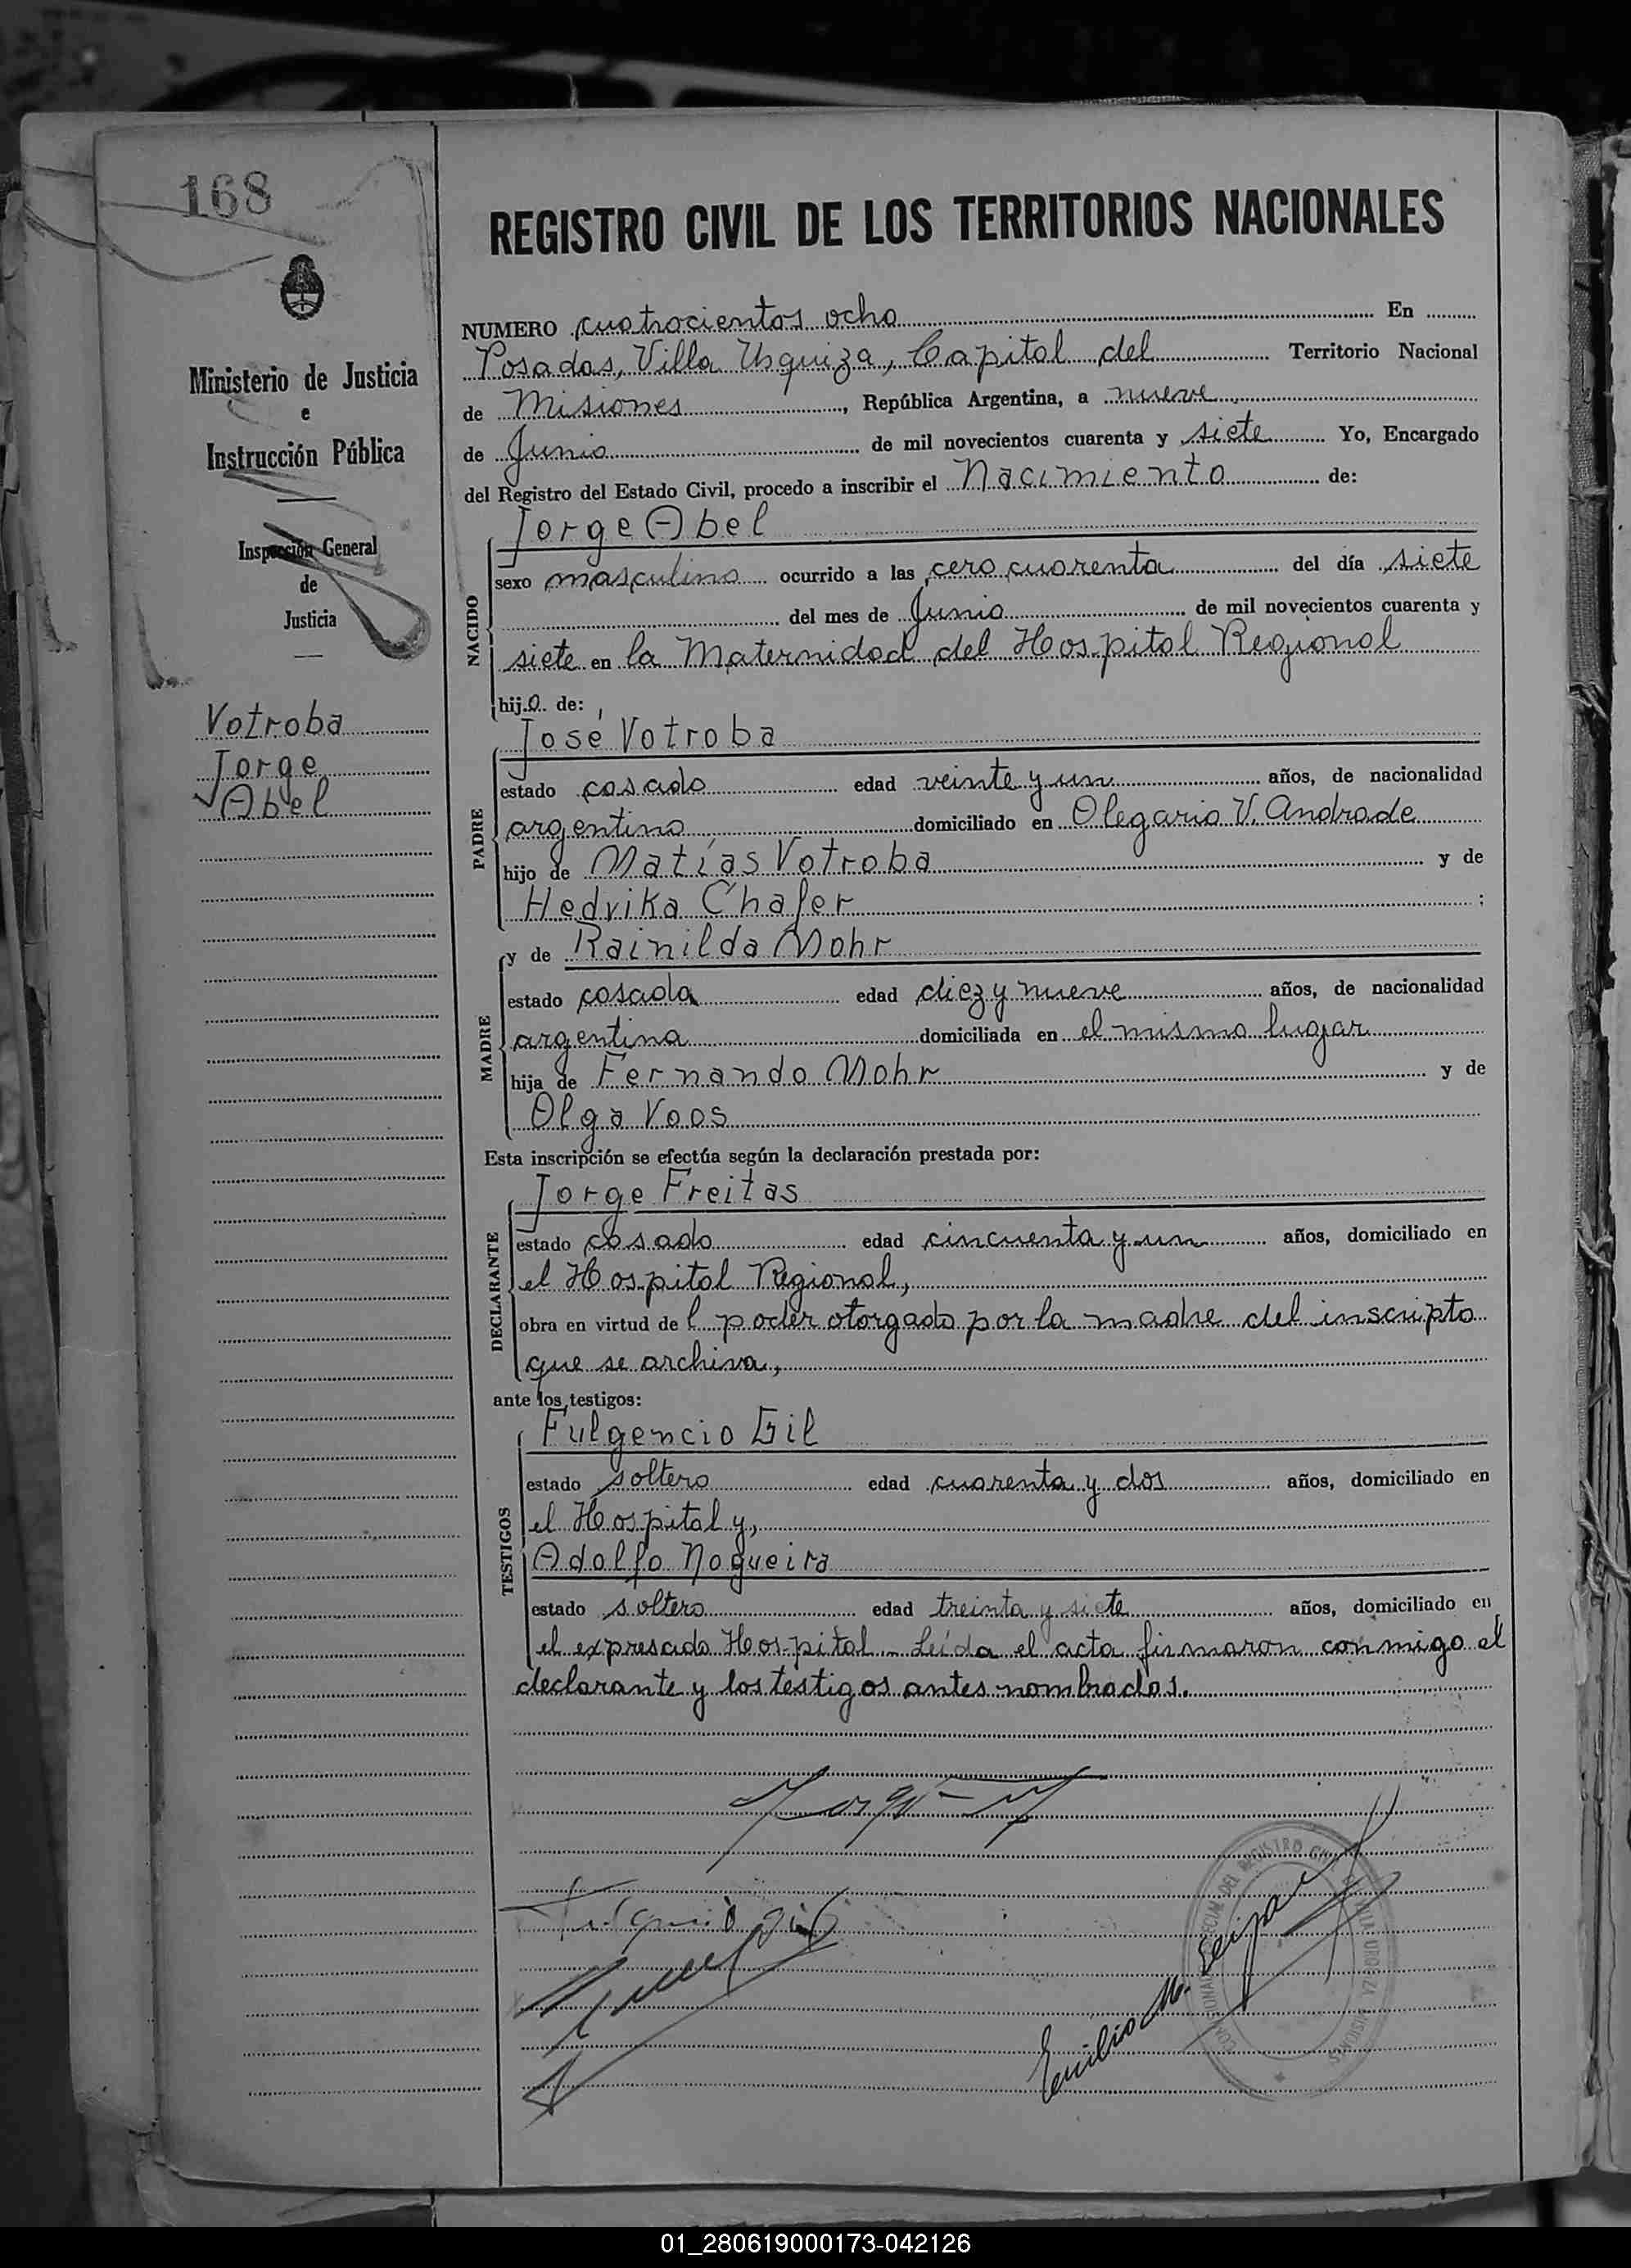 168
REGISTRO CIVIL DE LOS TERRITORIOS NACIONALES
Ministerio de Justicia
e
Instrucción Pública
Inspección General
de
Justicia
Votroba
Jorge
Abel
NUMERO cuatrocientos ocho En
Posadas, Villa Urquiza, Capital del Territorio Nacional
de Misiones, República Argentina, a nueve
de Junio de mil novecientos cuarenta y siete Yo, Encargado
del Registro del Estado Civil, procedo a inscribir el Nacimiento de:
NACIDO
Jorge Abel
sexo masculino ocurrido a las cero cuarenta del día siete
del mes de Junio de mil novecientos cuarenta y
siete en la Maternidad del Hospital Regional
hijo de:
PADRE
José Votroba
estado casado edad veinte y un años, de nacionalidad
argentino domiciliado en Olegario V. Andrade
hijo de Matías Votroba y de
Hedvika Chafer :
MADRE
y de Rainilda Mohr
estado casada edad diez y nueve años, de nacionalidad
argentina domiciliada en el mismo lugar
hija de Fernando Mohr y de
Olga Voos
Esta inscripción se efectúa según la declaración prestada por:
DECLARANTE
Jorge Freitas
estado casado edad cincuenta y un años, domiciliado en
el Hospital Regional,
obra en virtud del poder otorgado por la madre del inscripto
que se archiva,
ante los testigos:
TESTIGOS
Fulgencio Gil
estado soltero edad cuarenta y dos años, domiciliado en
el Hospital y,
Adolfo Nogueira
estado soltero edad treinta y siete años, domiciliado en
el expresado Hospital. Leída el acta firmaron conmigo el
declarante y los testigos antes nombrados.
Emilio M.
DEL REGISTRO CIVIL VILLA URQUIZA MISIONES
01_280619000173-042126